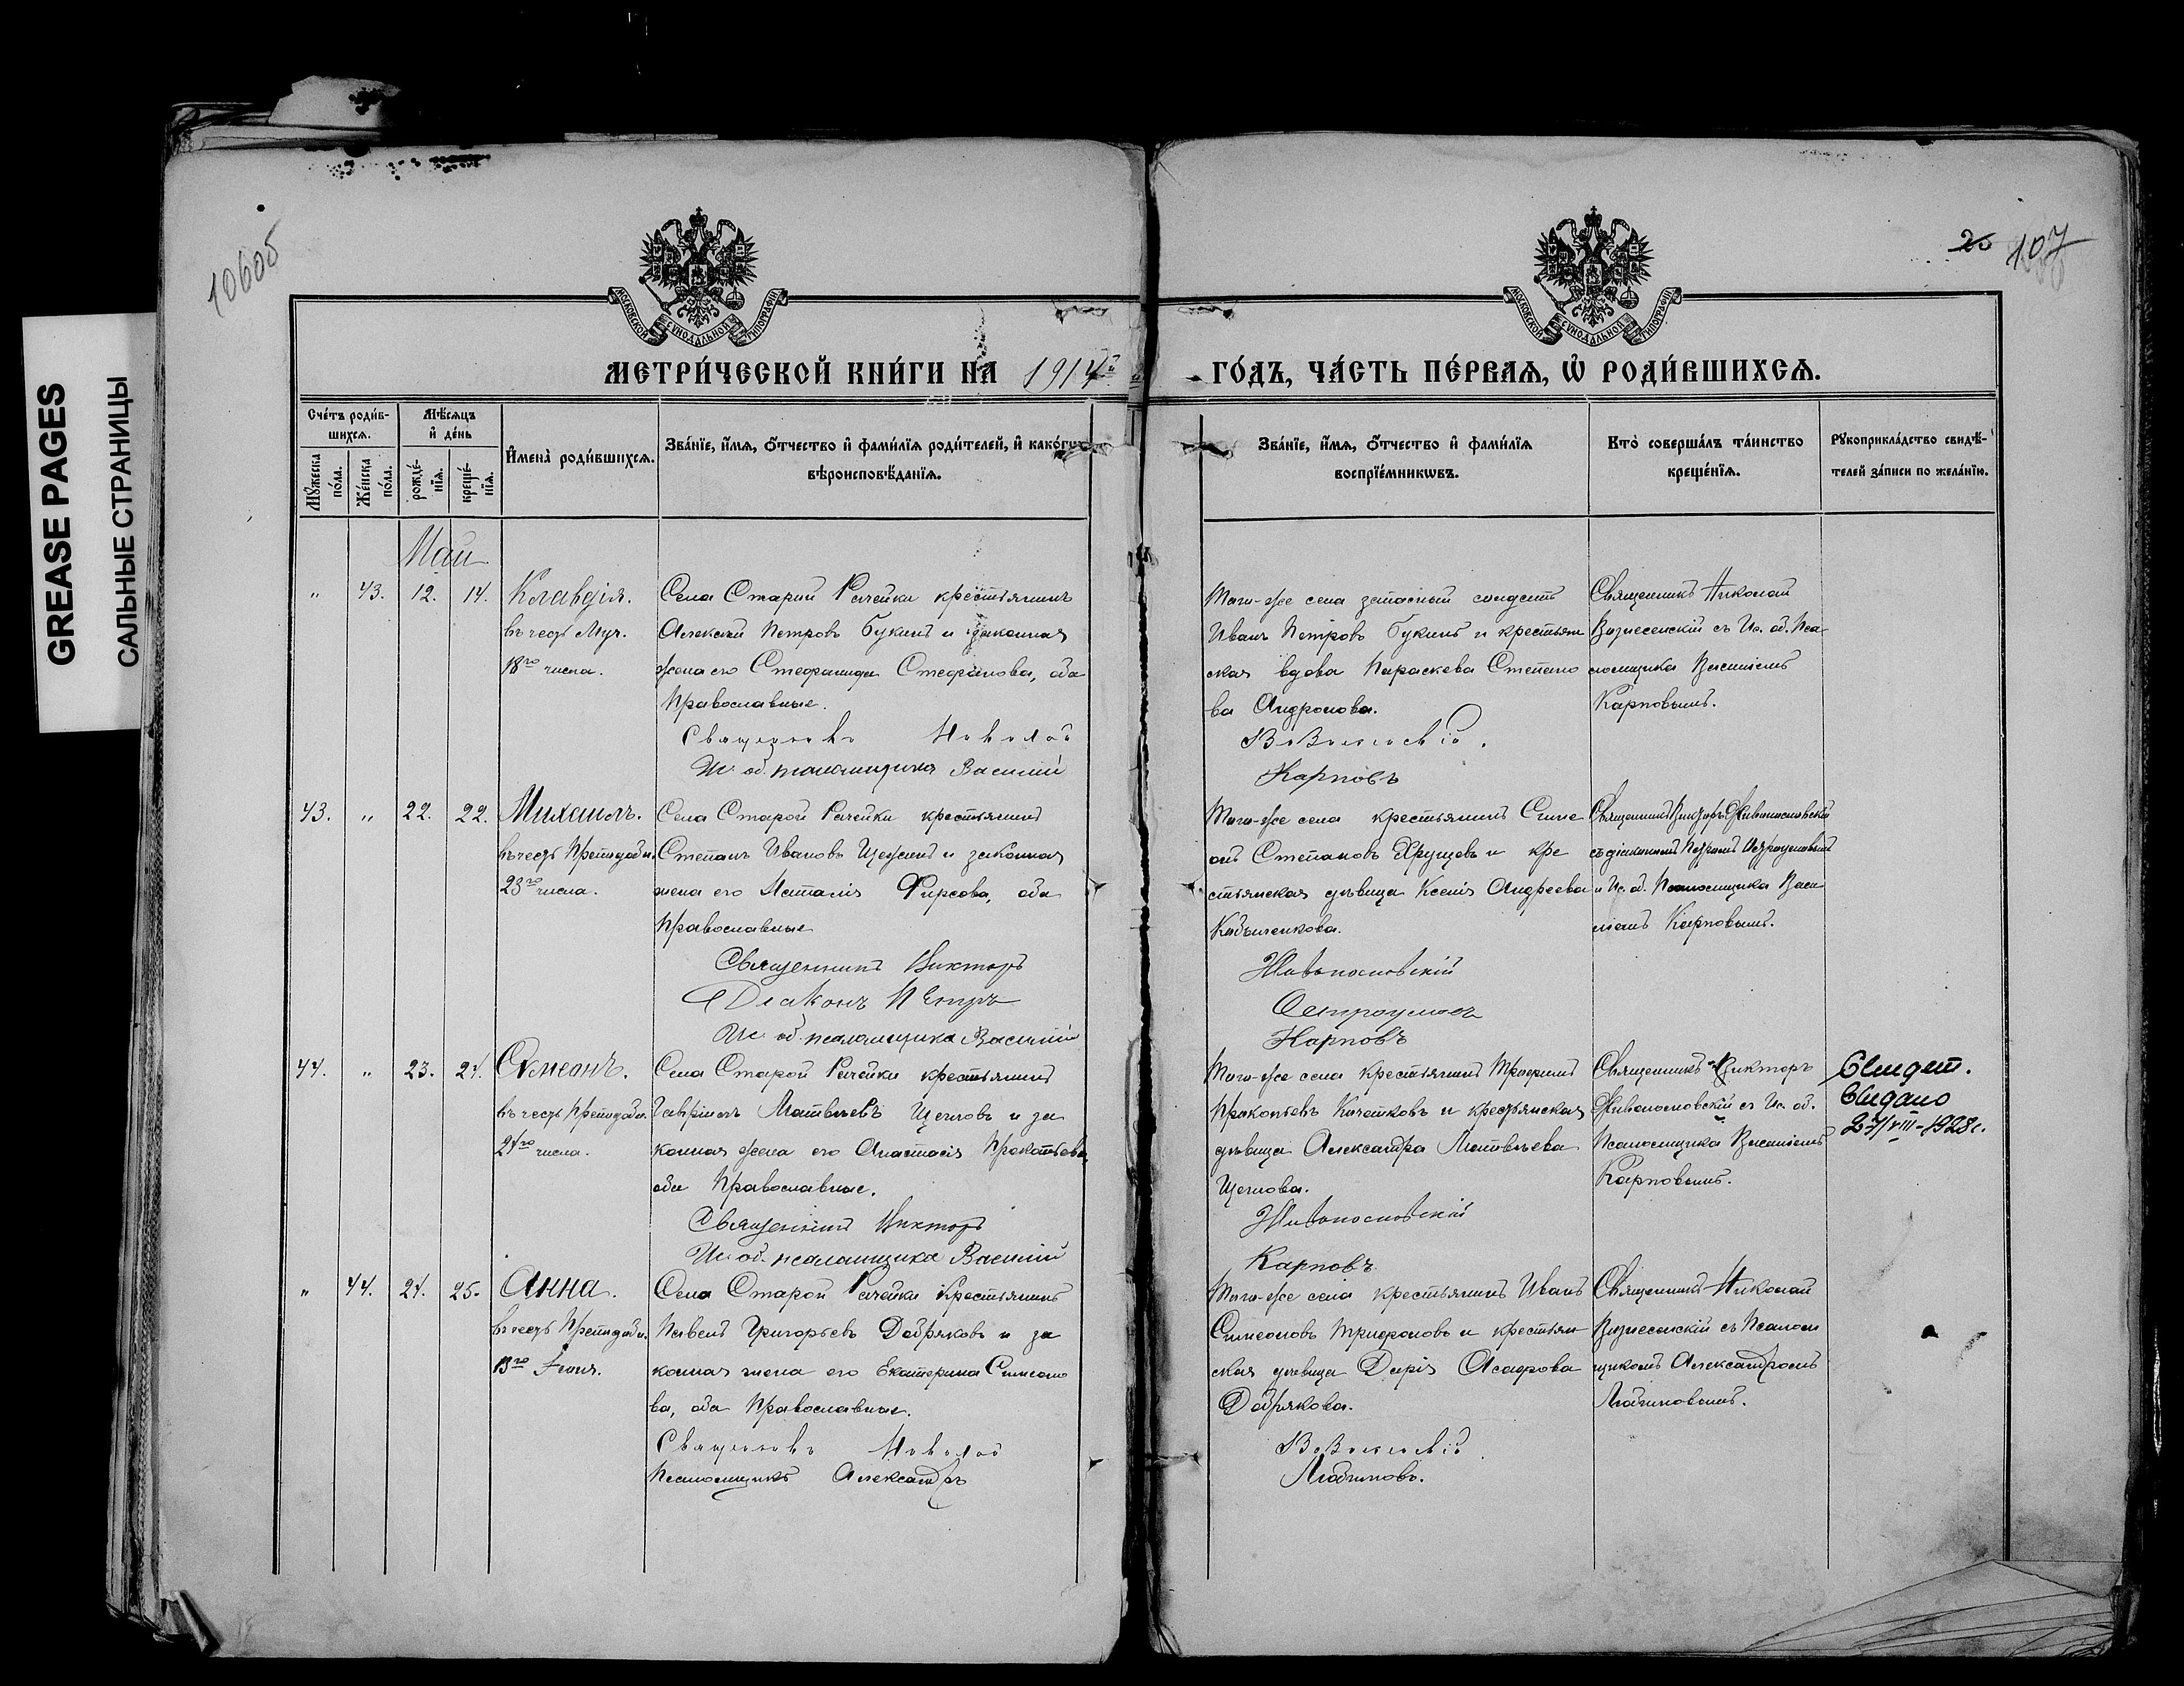 GREASE PAGES
САЛЬНЫЕ СТРАНИЦЫ
106об
26 107
МОСКОВСКОЙ СУНОДАЛЬНОЙ ТИПОГРАФІИ
МОСКОВСКОЙ СУНОДАЛЬНОЙ ТИПОГРАФІИ
МЕТРИ́ЧЕСКОЙ КНИ́ГИ НА 1914й
ГО́ДЪ, ЧА́СТЬ ПЕ́РВАЯ, Ѡ РОДИ́ВШИХСЯ.
Сче́тъ роди́в-
шихся.
Мꙋ́жеска по́ла.
Же́нска по́ла.
Мѣ́сяцъ и де́нь
рожде́-
нія.
креще́-
нія.
Имена̀ роди́вшихся.
Зва́ніе, и́мя, ѻ́тчество и фами́лія роди́телей, и како́гѡ
вѣроисповѣ́данія.
Зва́ніе, и́мя, ѻ́тчество и фами́лія
воспріе́мникѡвъ.
Кто̀ соверша́лъ та́инство
креще́нія.
Рꙋкоприкла́дство свидѣ́-
телей за́писи по жела́нію.
Май
" 43. 12. 14. Клавдія.
въ честь Муч.
18го числа.
Села Старой Рачейки крестьянинъ
Алексѣй Петровъ Букинъ и законная
жена его Стефанида Стефанова, оба
Православные.
Священникъ Николай
Ис. об. псаломщика Василій
Того-же села запасный солдатъ
Иванъ Петровъ Букинъ и крестьян
ская вдова Параскева Степано
ва Андронова.
Вознесенскій.
Карповъ
Священникъ Николай
Вознесенскій съ Ис. об. Пса-
ломщика Василіемъ
Карповымъ.
43. " 22. 22. Михаилъ.
въ честь Преподобн.
23го числа.
Села Старой Рачейки крестьянинъ
Степанъ Ивановъ и законная
жена его Наталія Фирсова, оба
Православные
Священникъ Викторъ
Діаконъ Петръ
Ис. об. псаломщика Василій
Того-же села крестьянинъ Симе
онъ Степановъ Хрущевъ и кре
стьянская дѣвица Ксенія Андреева
Живоносновскій
Остроумовъ
Карповъ
Священникъ Викторъ Живоносновскій
съ діакономъ Петромъ Остроумовымъ
и Ис. об. Псаломщика Васи
ліемъ Карповымъ.
44. " 23. 24. Сѵмеонъ.
въ честь Преподобн.
24го числа.
Села Старой Рачейки крестьянинъ
Гавріилъ Матвѣевъ Щегловъ и за
конная жена его Анастасія Прокопьева,
оба Православные.
Священникъ Викторъ
Ис. об. псаломщика Василій
Того-же села крестьянинъ Трофимъ
Прокопьевъ и крестьянская
дѣвица Александра Матвѣева
Щеглова.
Живоносновскій
Карповъ
Священникъ Викторъ
Живоносновскій съ Ис. об.
Псаломщика Василіемъ
Карповымъ.
Свидет.
Выдано
27/VIII-1928г.
" 44. 24. 25. Анна.
въ честь Преподобн.
13го Іюня.
Села Старой Рачейки Крестьянинъ
Павелъ Григорьевъ Добряковъ и за
конная жена его Екатерина Симеоно
ва, оба Православные.
Священникъ Николай
Псаломщикъ Александръ
Того-же села крестьянинъ Иванъ
Симеоновъ Трифоновъ и крестьян
ская дѣвица Дарія Асафова
Добрякова.
Вознесенскій
Любимовъ.
Священникъ Николай
Вознесенскій съ Псалом
щикомъ Александромъ
Любимовымъ.